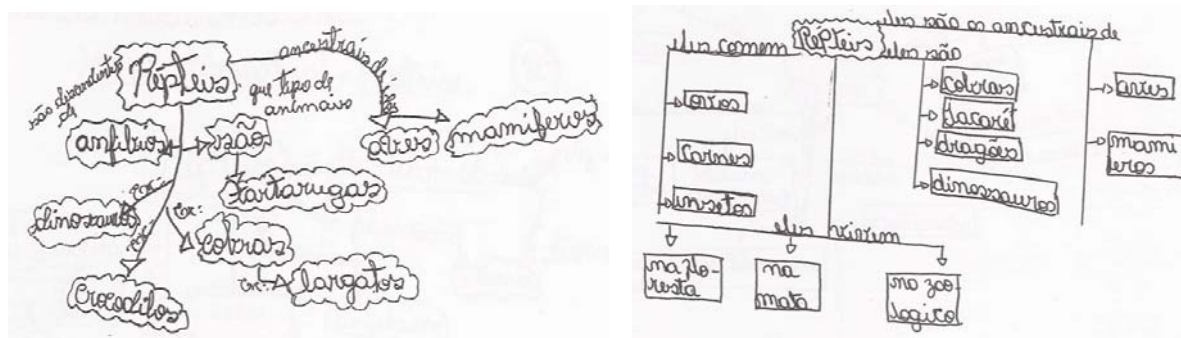 ancestrais de
são descendentes
de
Répteis
que tipo de
animais
anfíbios
são
aves
mamiferos
tartarugas
Ex:
dinossauros
Ex:
Ex:
cobras
crocodilos
Ex:
largatos
eles são os ancestrais de
eles comem
Répteis
eles são
ovos
carnes
insetos
cobras
Jacaré
dragões
dinossauros
aves
mami
feros
eles vivem
na flo-
resta
na
mata
no zoo-
logico